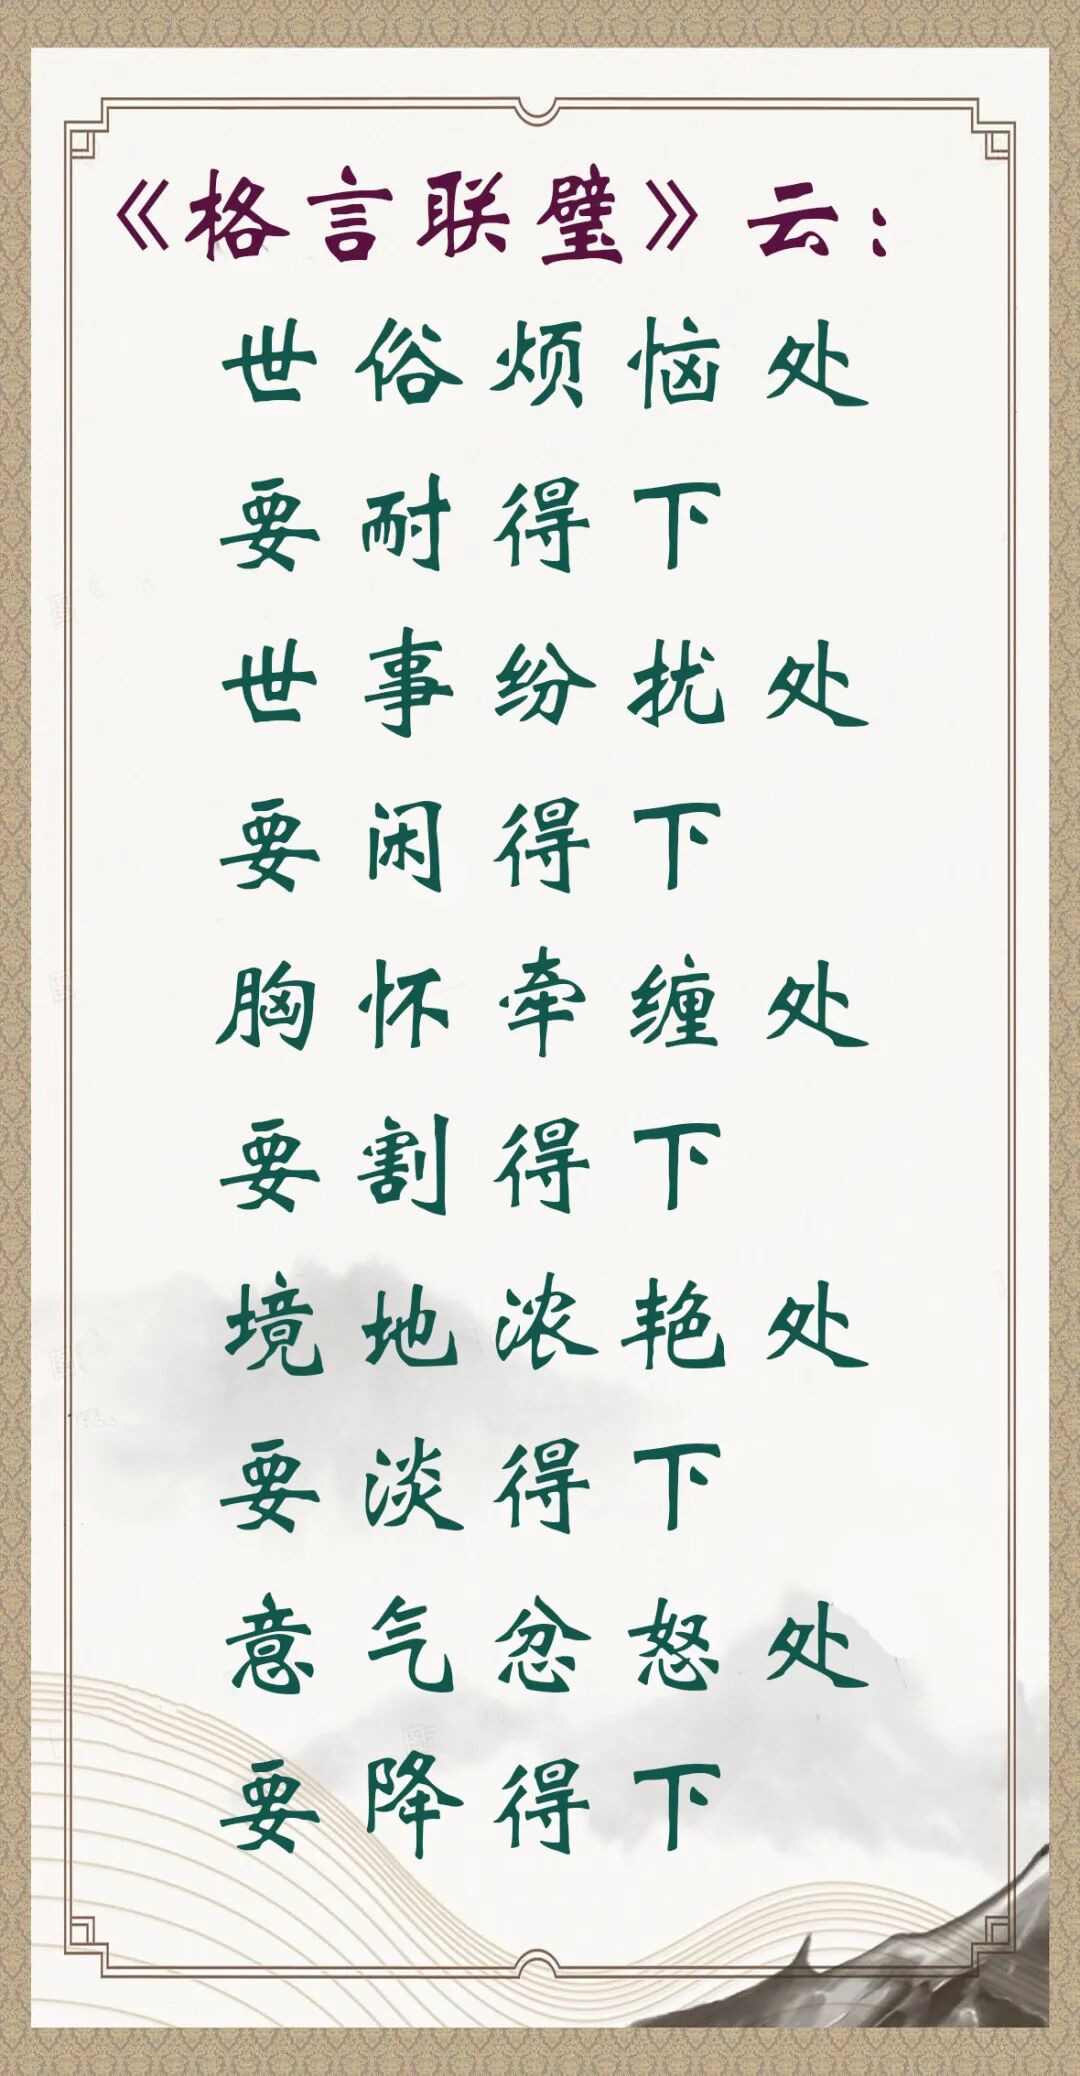 《格言联璧》云：
世俗烦恼处
要耐得下
世事纷扰处
要闲得下
胸怀牵缠处
要割得下
境地浓艳处
要淡得下
意气忿怒处
要降得下